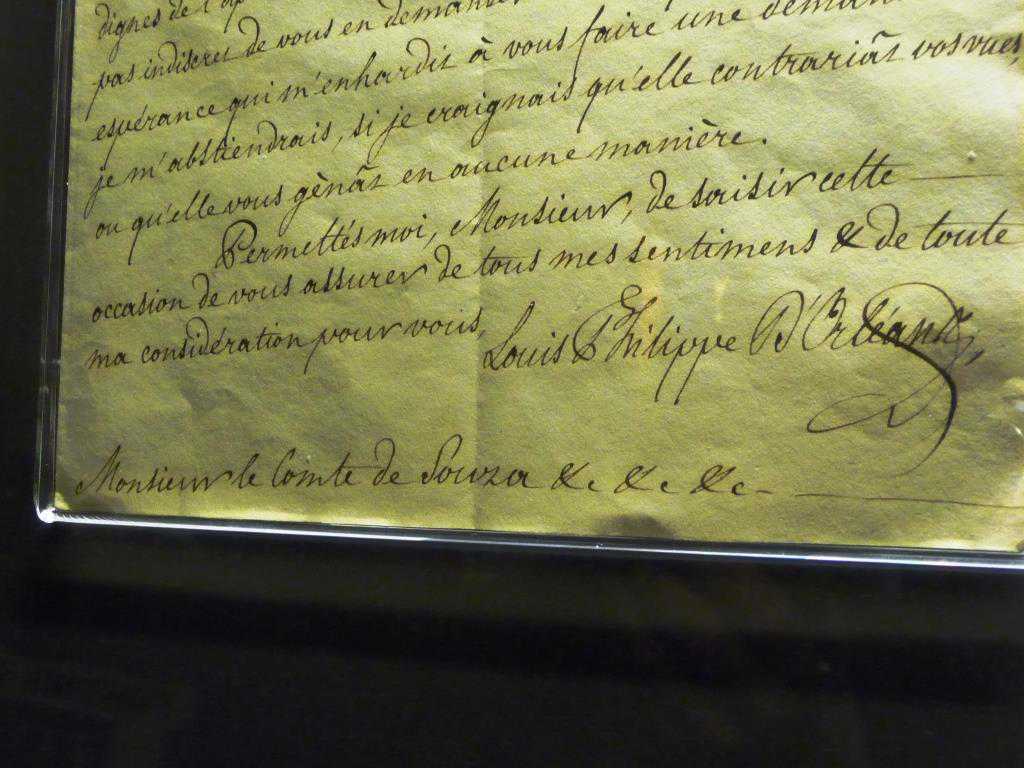 dignes de l'
pas indiscret de vous en demander
espérance qui m'enhardit à vous faire une deman
je m'abstiendrais, si je craignais qu'elle contrariât vos vues,
ou qu'elle vous gènât en aucune manière.
Permettés moi, Monsieur, de saisir cette
occasion de vous assurer de tous mes sentimens & de toute
ma considération pour vous.
Louis Philippe D'Orléans
Monsieur le Comte de Souza &c. &c. &c.